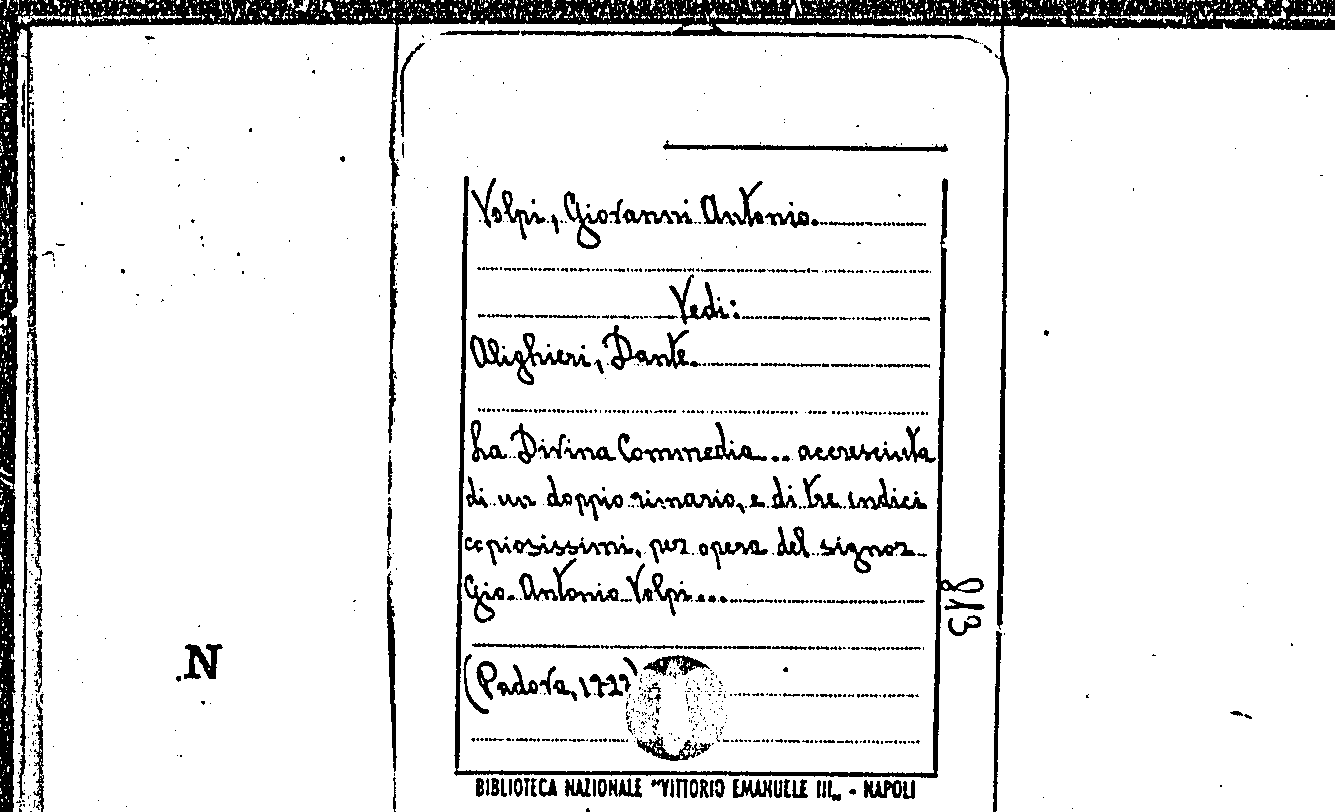 Volpi, Giovanni Antonio.
Vedi:
Alighieri, Dante.
La Divina Commedia... accresciuta
di un doppio rimario, e di tre indici
copiosissimi, per opera del signor
Gio. Antonio Volpi...
(Padova, 1727)
813
N
BIBLIOTECA NAZIONALE "VITTORIO EMANUELE III„ - NAPOLI